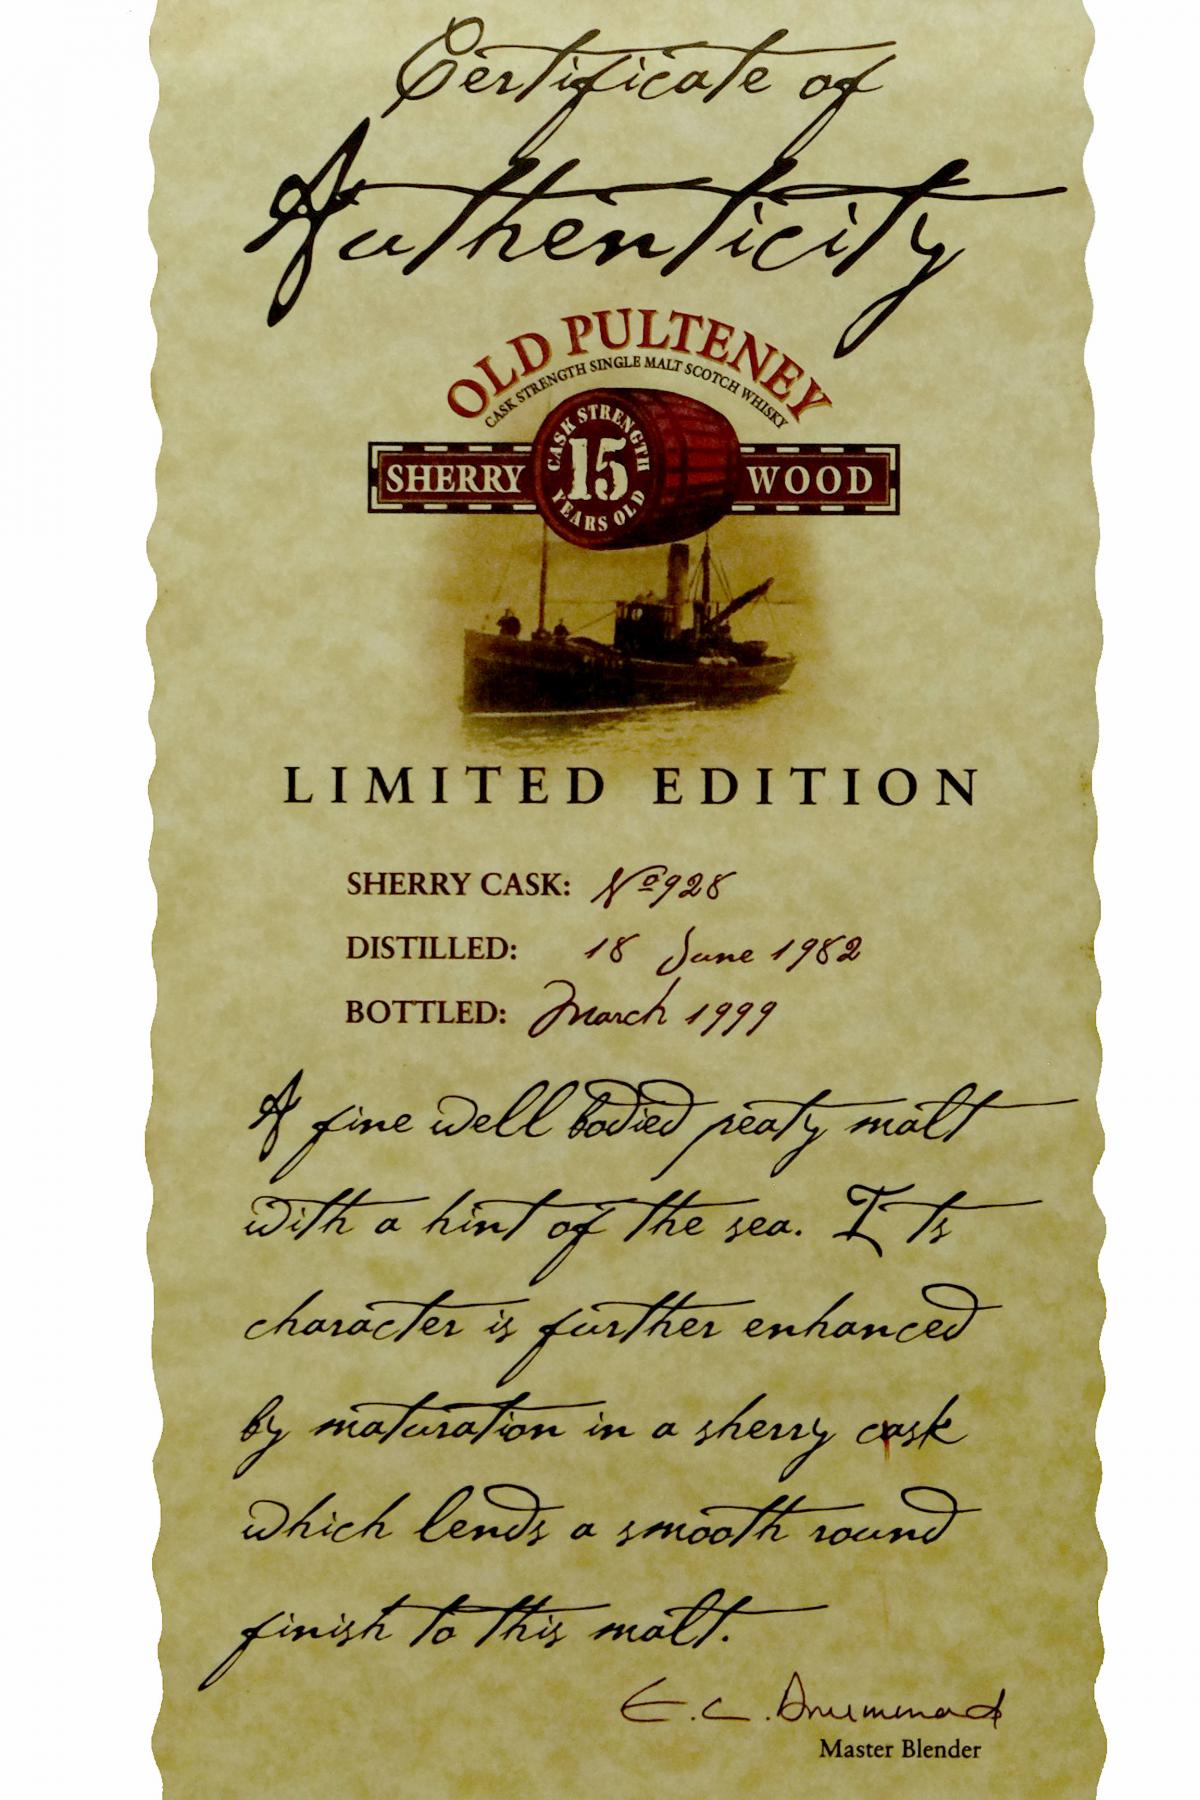 Certificate of
Authenticity
OLD PULTENEY
CASK STRENGTH SINGLE MALT SCOTCH WHISKY
CASK STRENGTH
SHERRY 15 WOOD
YEARS OLD
LIMITED EDITION
SHERRY CASK: Nº 928
DISTILLED: 18 June 1982
BOTTLED: March 1999
A fine well bodied peaty malt
with a hint of the sea. Its
character is further enhanced
by maturation in a sherry cask
which lends a smooth round
finish to this malt.
E. C. Drummond
Master Blender